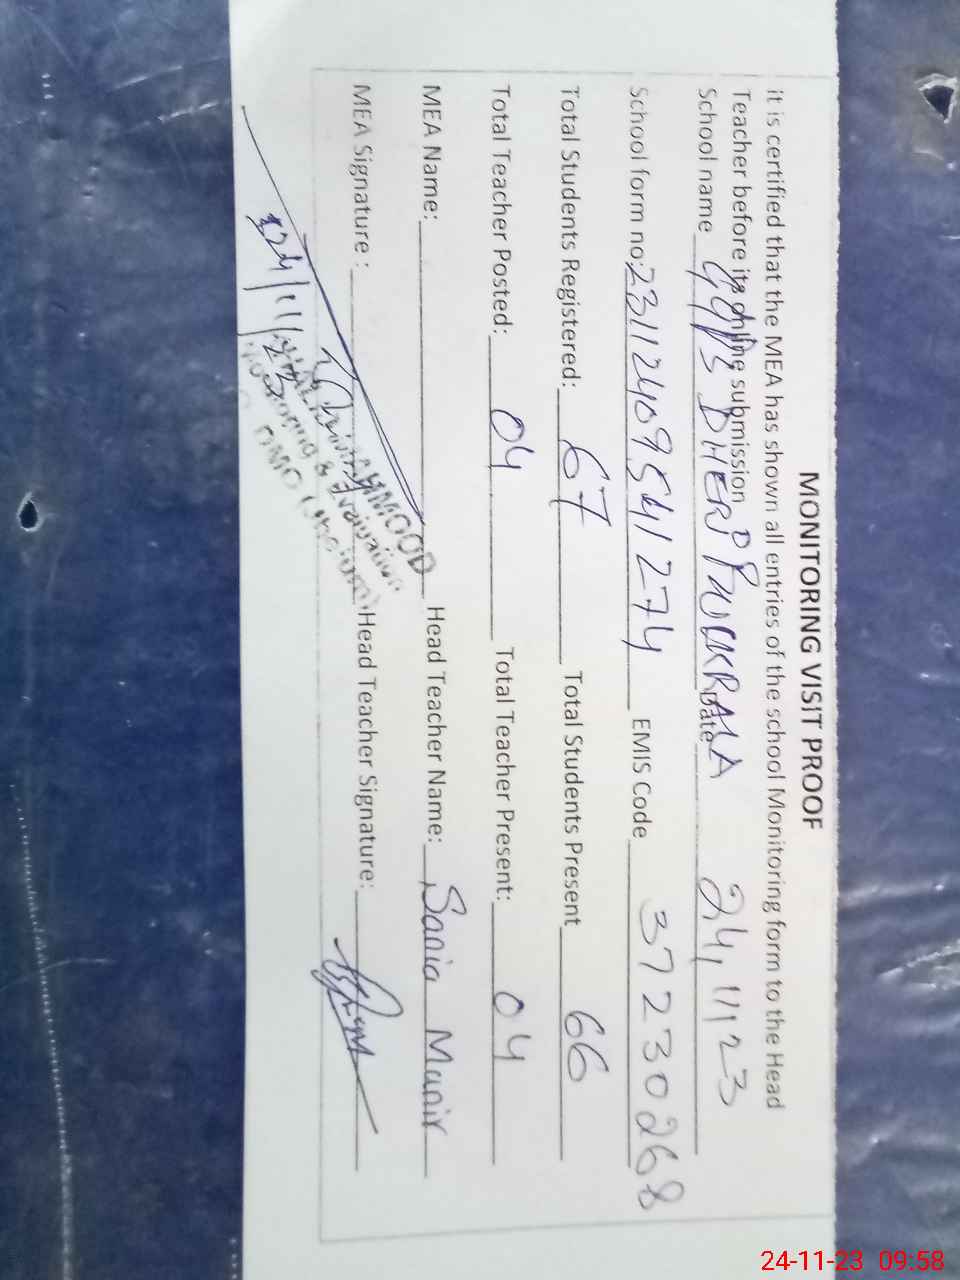 MONITORING VISIT PROOF
it is certified that the MEA has shown all entries of the school Monitoring form to the Head
Teacher before its online submission
School name GGPS DHERI PHUCKRALA Date 24,11,23
School form no: 231124095541274 EMIS Code 37230268
Total Students Registered: 67 Total Students Present 66
Total Teacher Posted: 04 Total Teacher Present: 04
MEA Name: Head Teacher Name: Sania Munir
MEA Signature : Head Teacher Signature:
24/11/23
MAHMOOD
Monitoring & Evaluation
DMO
24-11-23 09:58